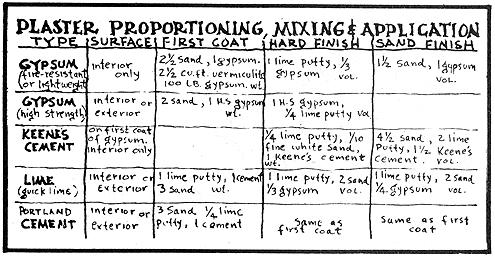 PLASTER PROPORTIONING, MIXING & APPLICATION
TYPE SURFACE FIRST COAT HARD FINISH SAND FINISH
GYPSUM
(fire-resistant
or lightweight)
interior
only
2½ sand, 1 gypsum.
2½ cu.ft. vermiculite
100 LB. gypsum. wt.
1 lime putty, ⅓
gypsum vol.
1½ sand, 1 gypsum
vol.
GYPSUM
(high strength)
interior or
exterior
2 sand, 1 H.S gypsum
wt.
1 H.S gypsum,
¼ lime putty vol.
KEENE'S
CEMENT
on first coat
of gypsum.
interior only
¼ lime putty, 1/10
fine white sand,
1 Keene's cement
wt.
4½ sand, 2 lime
Putty, 1½ Keene's
cement. vol.
LIME
(quick lime)
interior or
exterior
1 lime putty, 1 cement
3 sand wt.
1 lime putty, 2 sand
⅓ gypsum vol.
1 lime putty, 2 sand
¼ gypsum vol.
PORTLAND
CEMENT
interior or
exterior
3 Sand ¼ lime
putty, 1 cement
Same as
first coat
Same as first
coat